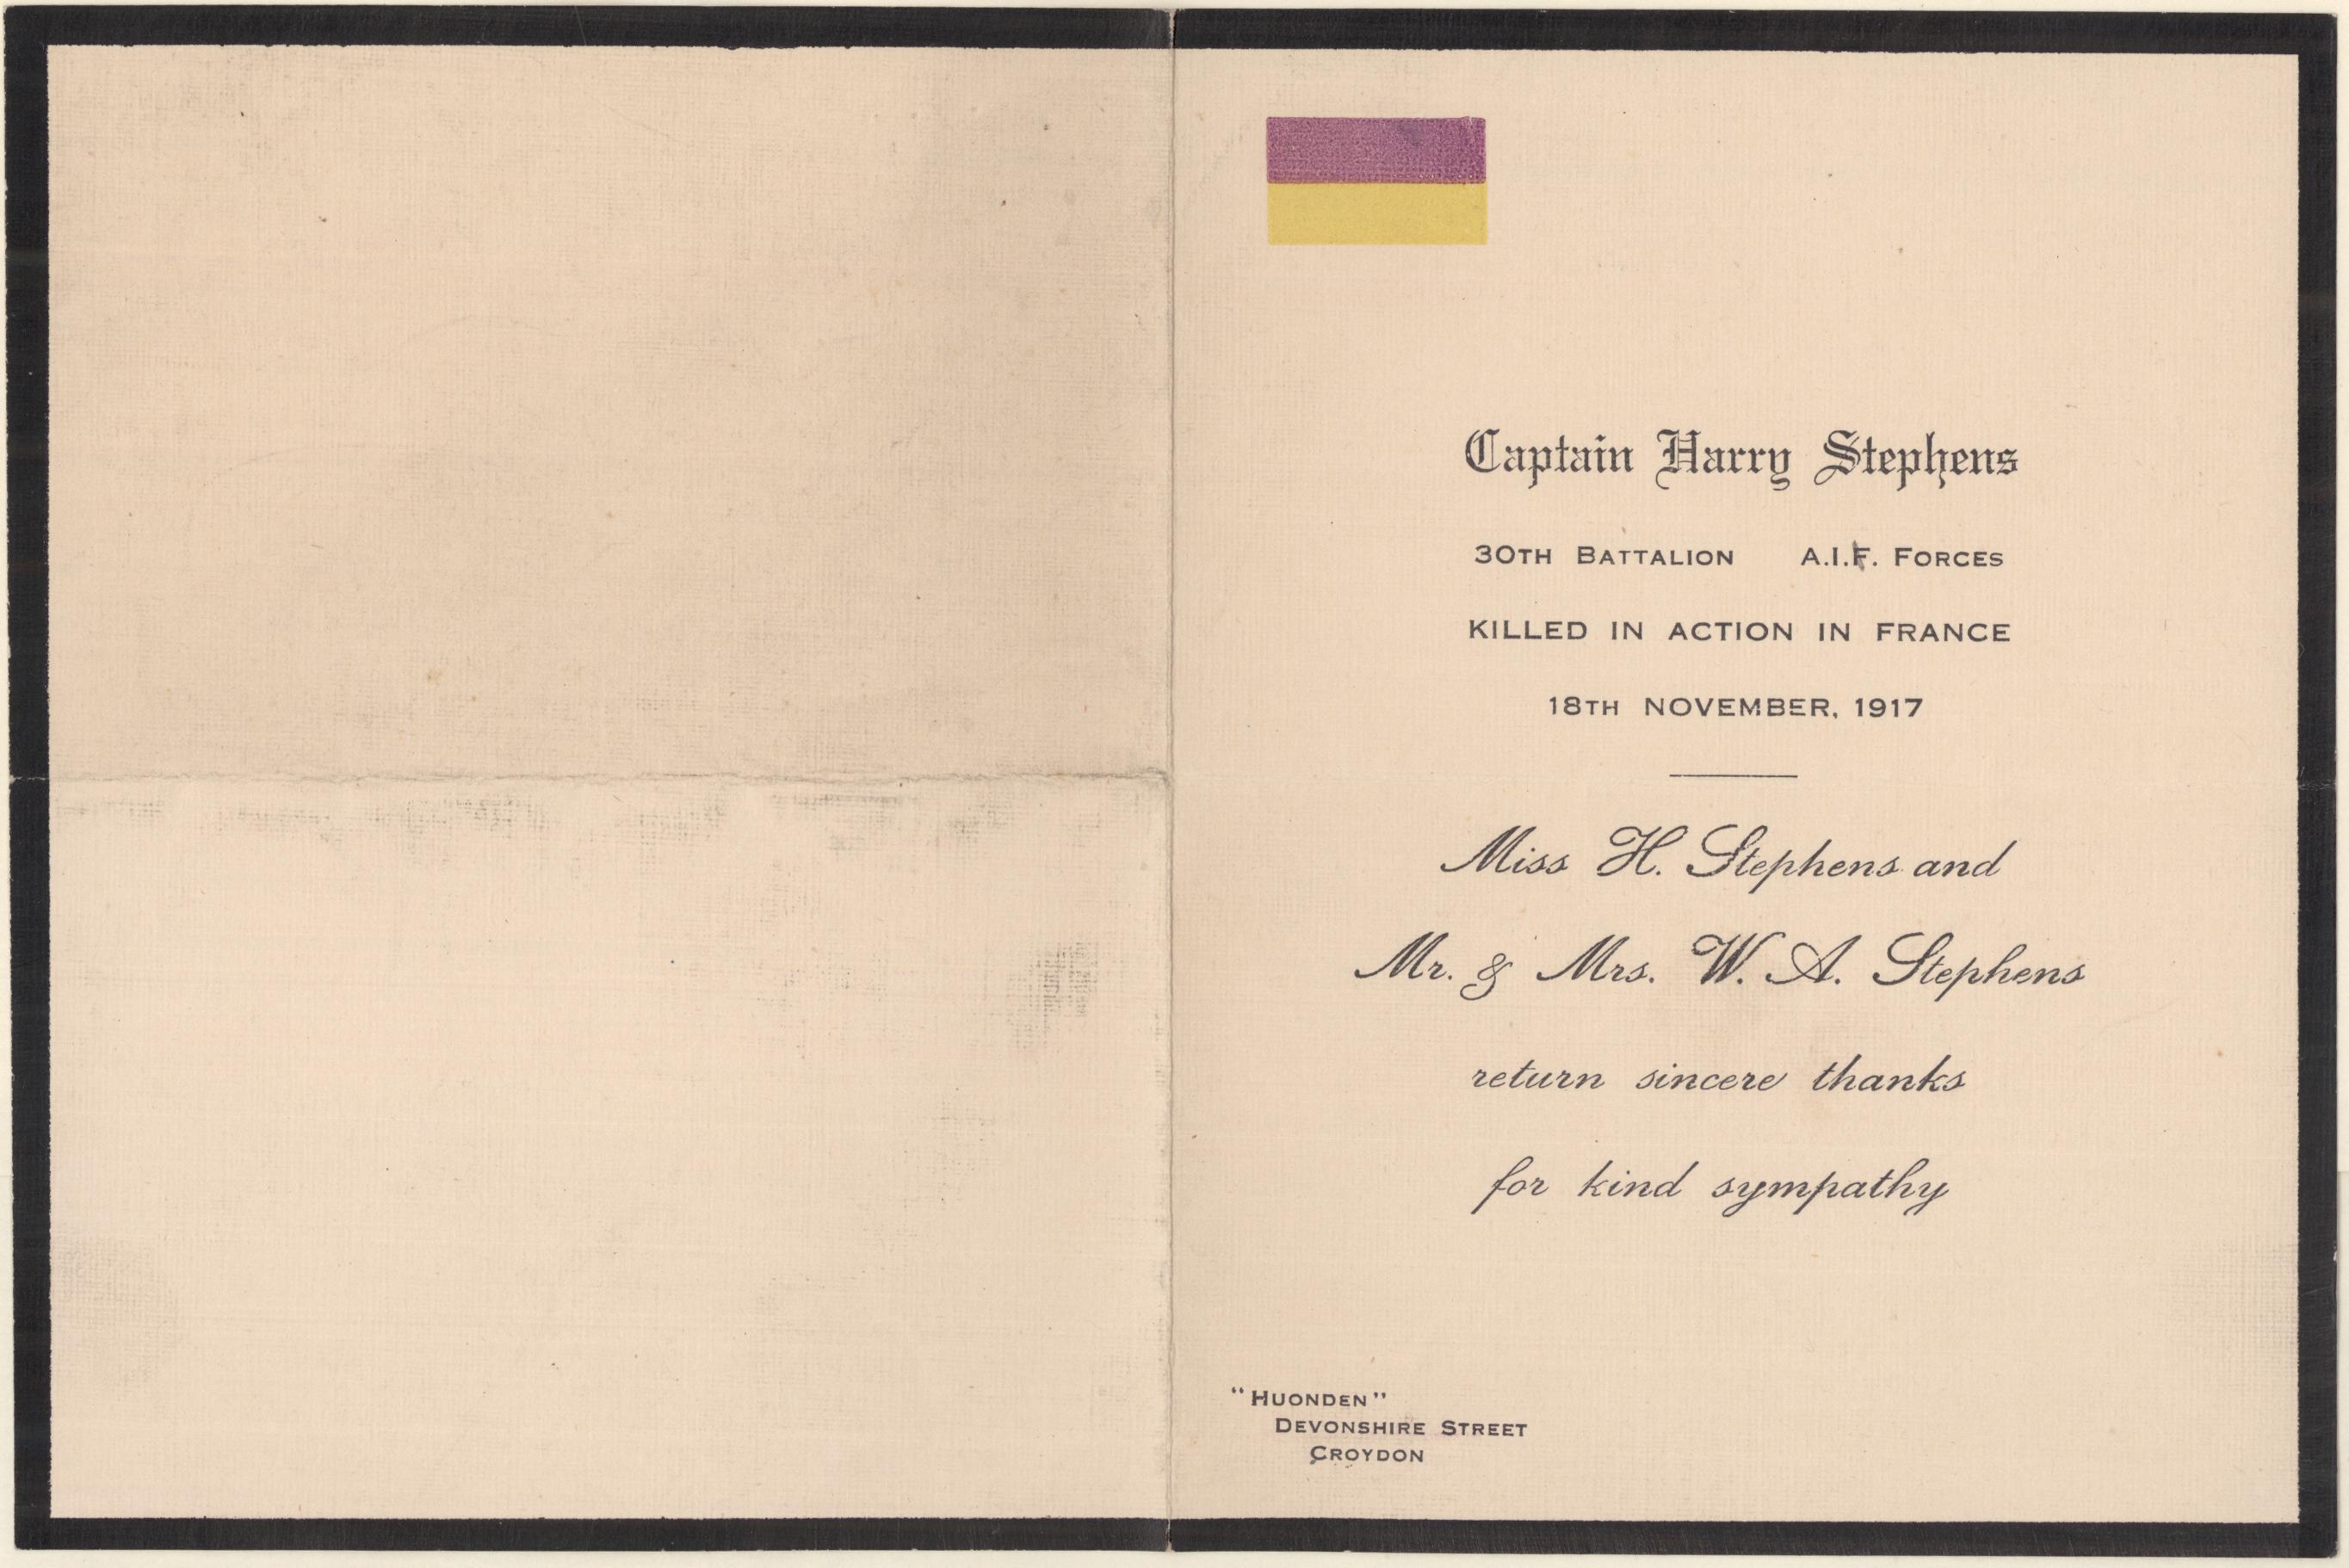 Captain Harry Stephens
30TH BATTALION A.I.F. FORCES
KILLED IN ACTION IN FRANCE
18TH NOVEMBER, 1917
Miss H. Stephens and
Mr. & Mrs. W. A. Stephens
return sincere thanks
for kind sympathy
"HUONDEN"
DEVONSHIRE STREET
CROYDON